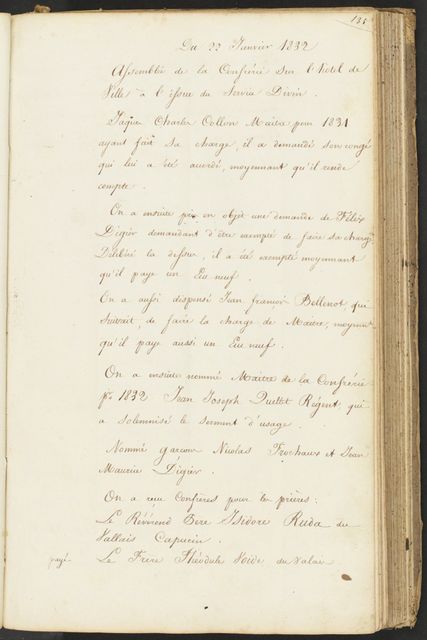 135
Du 22 Janvier 1832
Assemblée de la Confrérie sur l'hotel de
Ville à l'issue du Service Divin.
Jaques Charles Collon Maitre pour 1831
ayant fait sa charge, il a demandé son congé
qui lui a été acordé, moyennant qu'il rende
compte.
On a ensuite pris en objet une demande de Félix
Digier demandant d'être exempté de faire sa charge
Délibéré la dessus, il a été exempté moyennant
qu'il paye un Ecu neuf.
On a aussi dispensé Jean françois Bellenot, qui
suivait, de faire la charge de Maitre, moyenn^t
qu'il paye aussi un Ecu neuf.
On a ensuite nommé Maitre de la Confrérie
p^r 1832 Jean Joseph Quellet Régent, qui
a solemnisé le serment d'usage.
Nommé garçons Nicolas Frochaux et Jean
Maurice Digier.
On a reçu Confrères pour les prières:
Le Révérend Pere Isidore Ruda du
Vallais Capucin.
payé Le Frere Théodule Voide du Valais